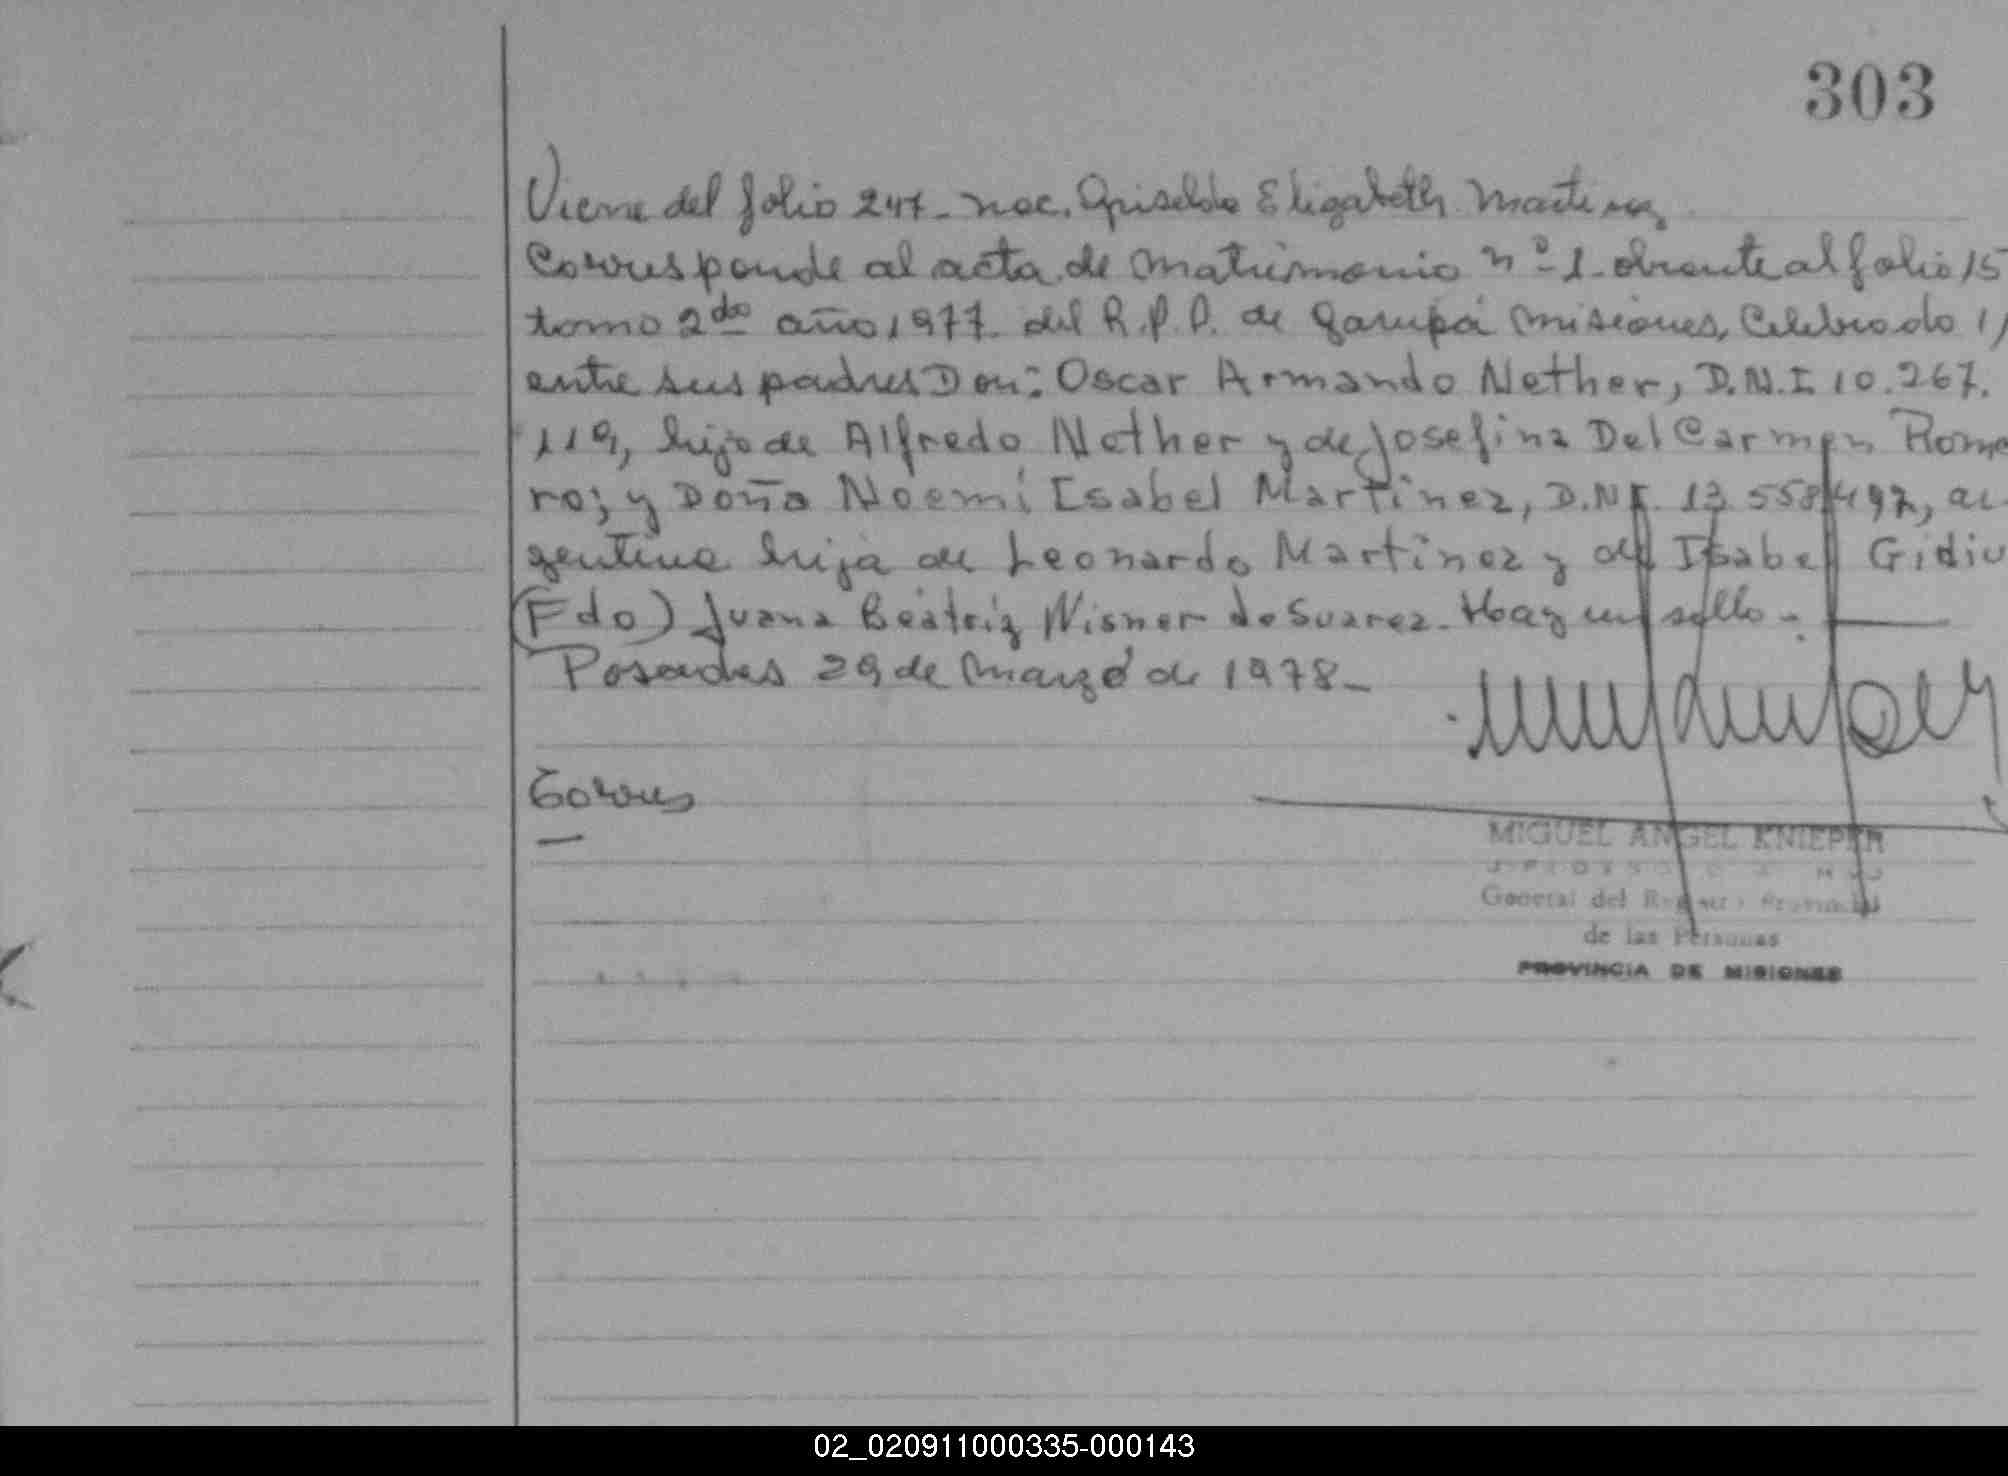 303
Viene del folio 247- nac. Griselda Elizabeth Martinez
Corresponde al acta de matrimonio nº-1- obrante al folio 15
tomo 2do año 1977- del R.P.P. de Garupá Misiones, Celebrado
entre sus padres Don: Oscar Armando Nether, D.N.I 10.267.
119, hijo de Alfredo Nether y de Josefina Del Carmen Rome
ro; y Doña Noemí Isabel Martinez, D.N.I. 13.558.497, ar
gentina hija de Leonardo Martinez y de Isabel
(Fdo) Juana Beatriz Wisner de Suarez- Hay un sello-.
Posadas 29 de marzo de 1978-
Torres
MIGUEL ANGEL KNIEPER
General del Registro Provincial
de las Personas
PROVINCIA DE MISIONES
02_020911000335-000143